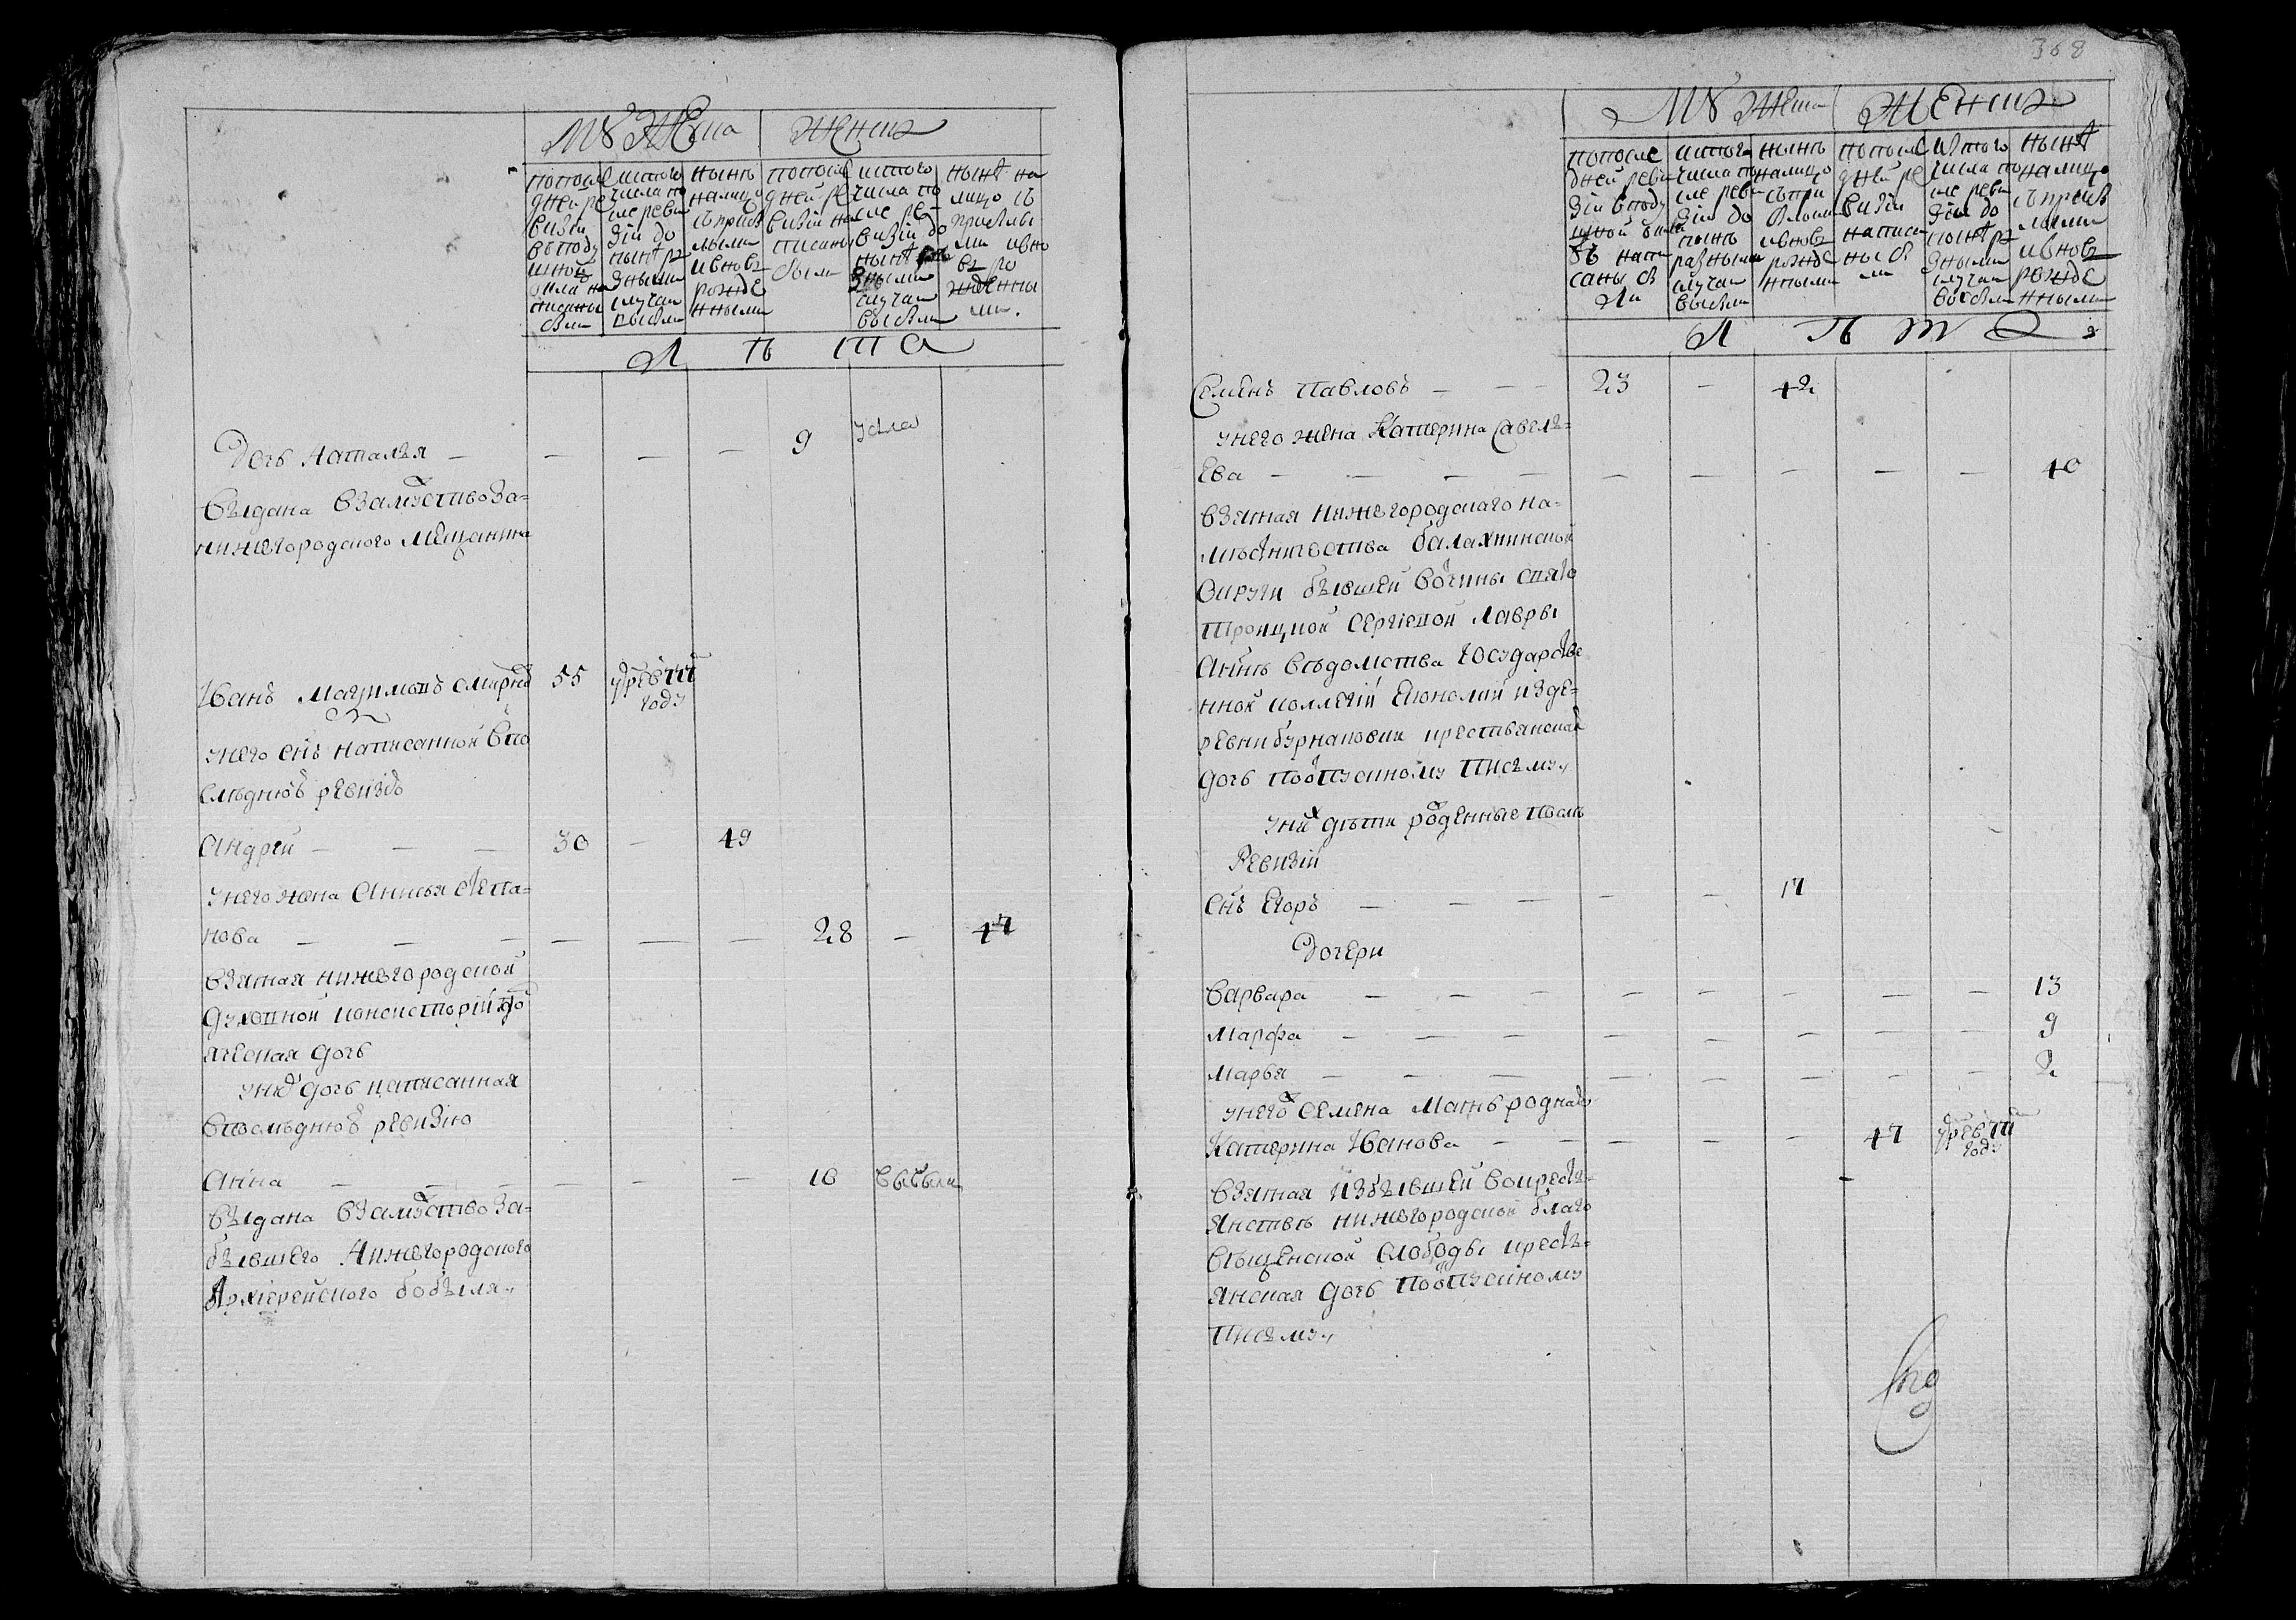 Мужеска Женска
попослѣ
дней ре
визіи
въ поду
шной
окладъ на
писаны
было
истого
числа по
сле реви
зіи до
нынѣ ра
зными
случаи
выбыли
нынѣ
налицо
съприбы
лыми
ивновь
рожде
нными
попослѣ
дней ре
визіи на
писаны
было
исттого
числа по
сле ре-
визіи до
нынѣ
зными
случаи
выбыли
нынѣ на
лицо съ
прибылы
ми ивно
вь ро
жденны
ми.
Л ѣ т а
Дочь Наталья — — — — 9
Выдана взамуство за-
нижегородского мещанина
Иванъ 55 умре
году
унего снъ написанной впо
следнюю ревизію
Андрей — — — 30 — 49
унего жена Анисья Степа-
нова — — — — — — 28 — 47
взятая нижегородской
духовной консисторіи
яческая дочь
унихъ дочь написанная
впослѣднюю ревизію
Анна — — — — — — 10 выбыла
выдана взамуство за-
бывшего Нижегородского
Архіерейского бобыля.,
368
Мужеска Женска
попосле
дней реви
зіи вподу
шной окла
дъ напи
саны бы
ли
исттого
числа по
сле реви
зіи до
нынѣ
разными
случаи
выбыли
нынѣ
налицо
съпри
былыми
ивновь
рожде
нными
попослѣ
дней ре
визіи
написа
ны бы
ли
исттого
числа по
сле реви
зіи до
нынѣ ра
зными
случаи
выбыли
нынѣ
налицо
съприбы
лыми
ивновь
рожде
нными
Л ѣ т а
Семенъ Павловъ — — — 23 — 42
унего жена Катерина Савель-
ева — — — — — — — — — 40
взятая Нижегородскаго на-
мѣсничества балахнинской
округи бывшей вочины свято
Троицкой Сергіевой Лавры
анынѣ вѣдомства Государстве
нной коллегіи Економіи изде-
ревни бурнаковки крестьянская
дочь поотпускному письму,,
унихъ дѣти рожденные послѣ
Ревизіи
снъ Егоръ — — — — — 17
Дочери
Варвара — — — — — — — — 13
Марфа — — — — — — — — 9
Марья — — — — — — — — 2
унего Семена мать родная
Катерина Иванова — — — — — 47 умре
году
взятая избывшей вокресть-
янствѣ нижегородской благо
вѣщенской слободы кресть-
янская дочь поотпускному
письму,,